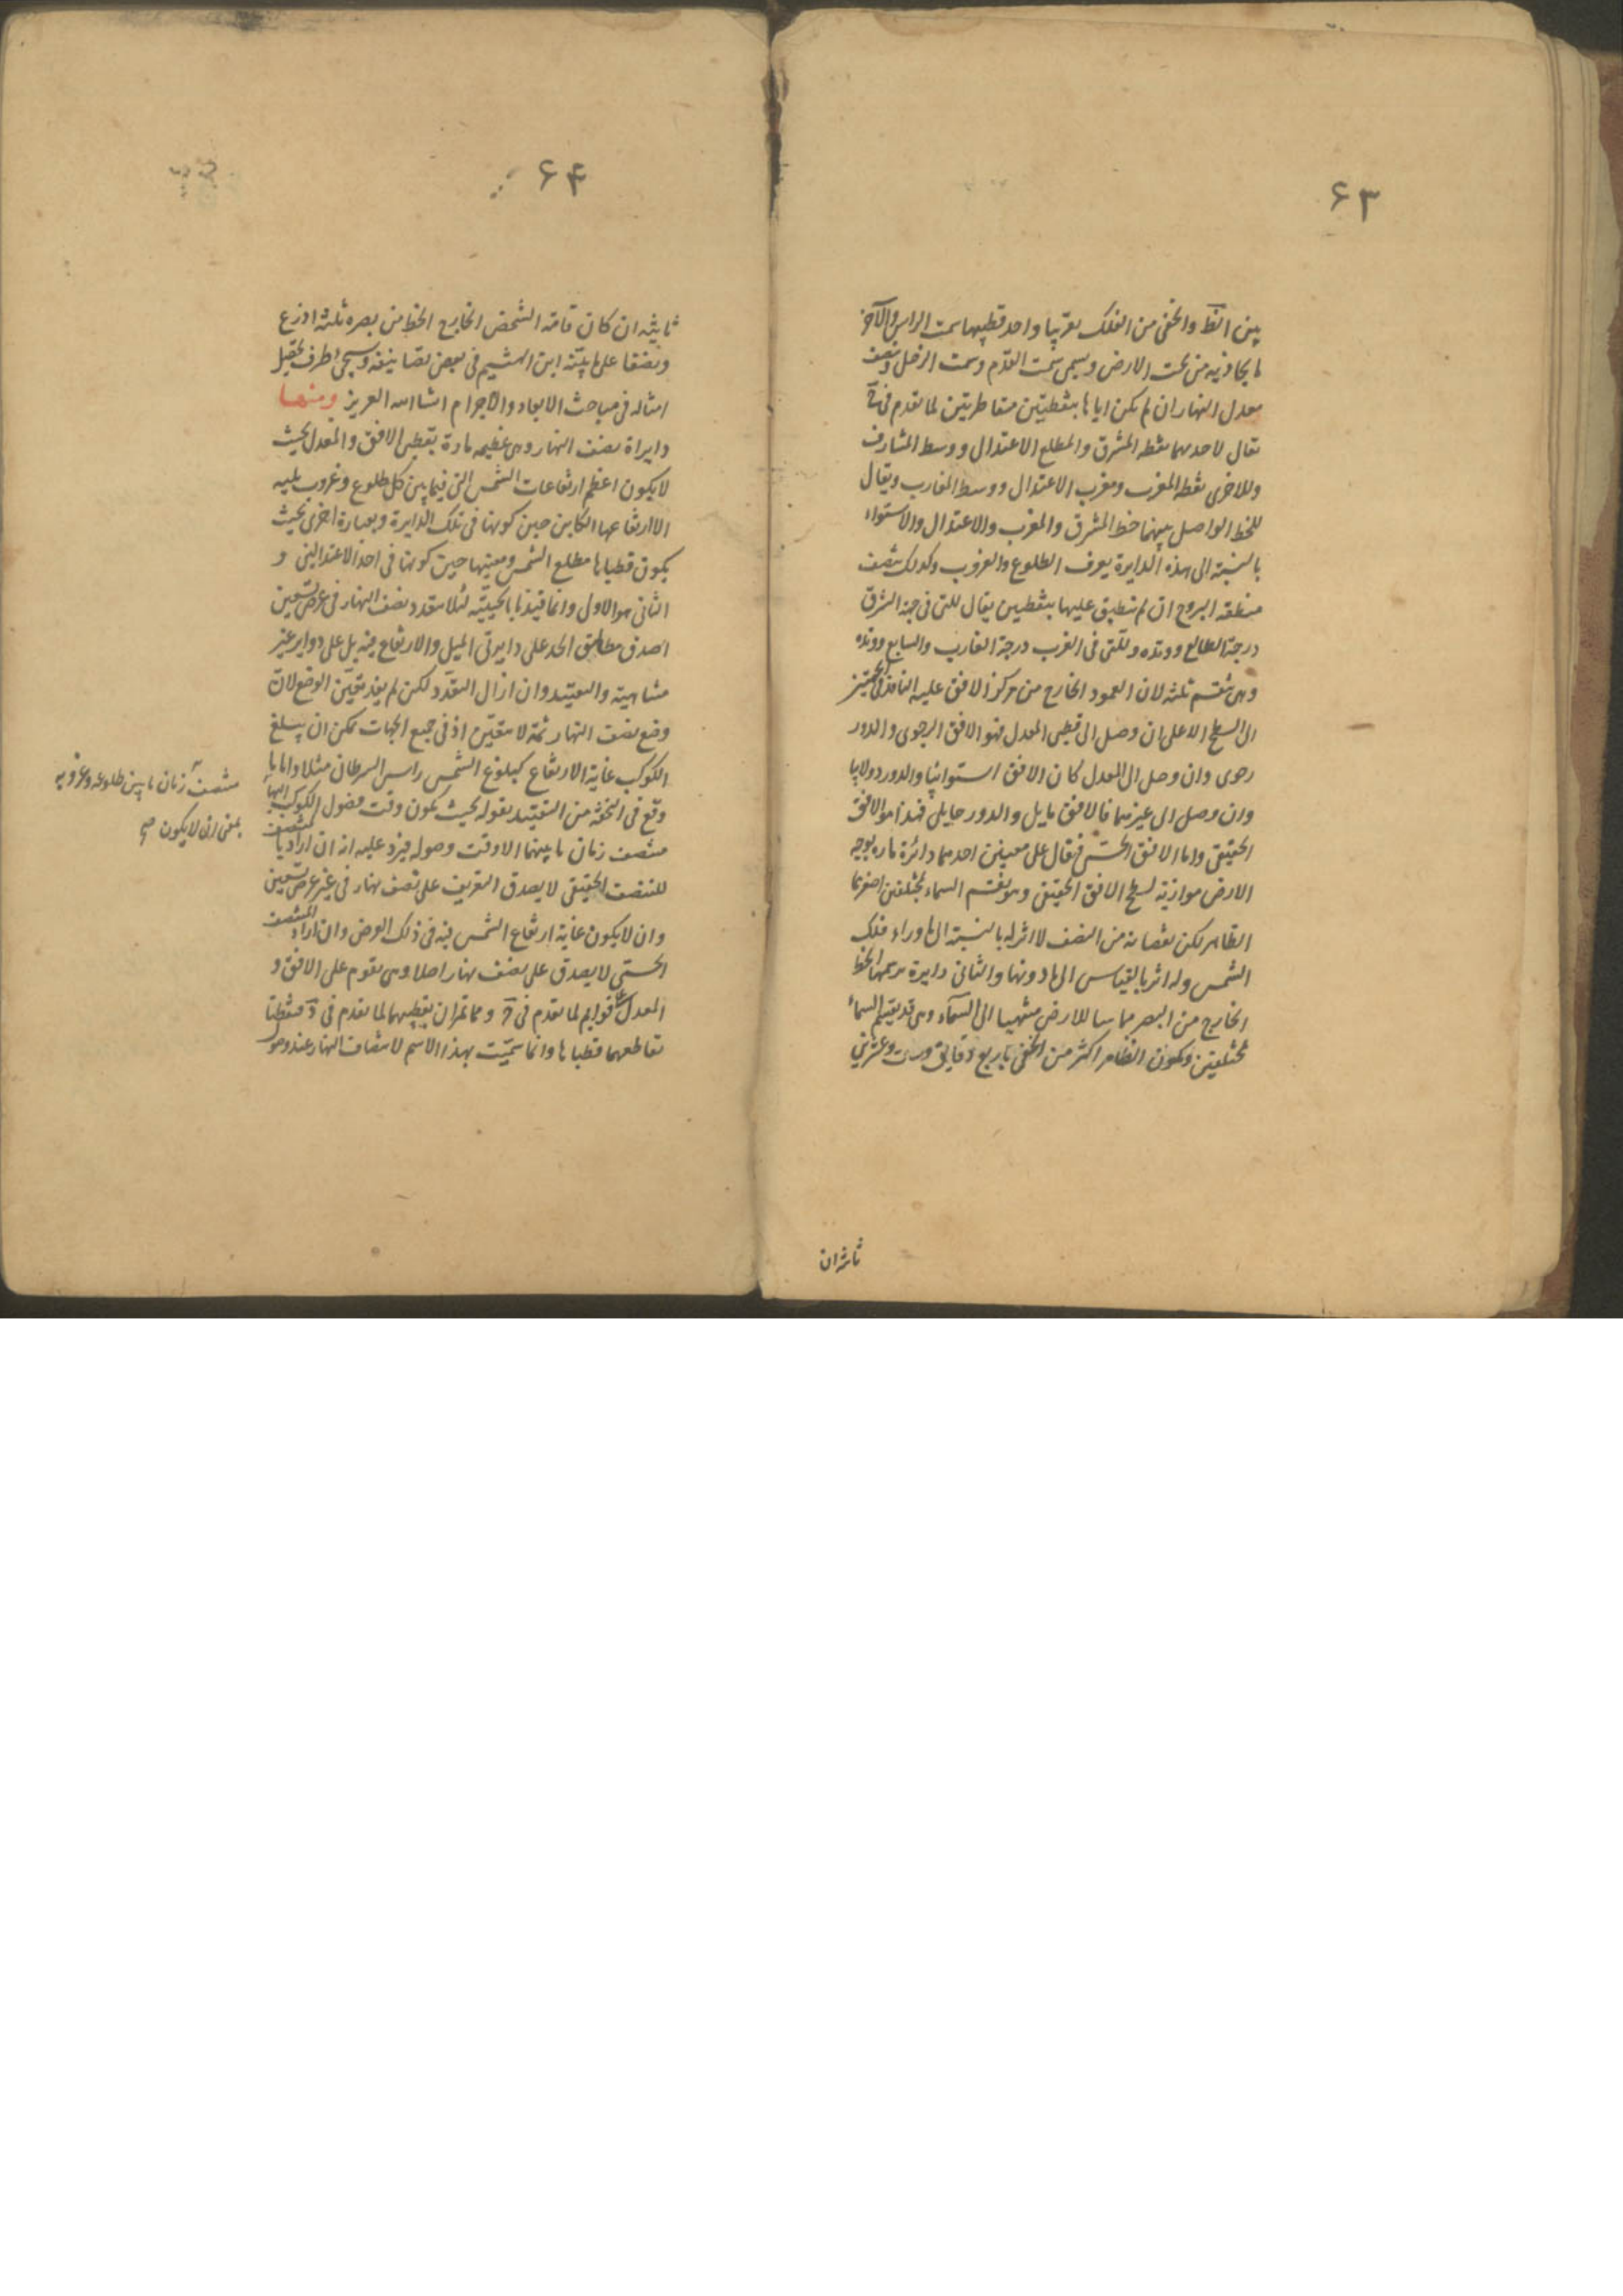 ۶۳
بين الظ والخفي من الفلك تقريبا واحد قطبيها سمت الراس والآخر
ما يحاذيه من تحت الارض ويسمى سمت القدم وسمت الرجل وتنصف
معدل النهار ان لم يكن اياها بنقطتين متقاطرتين لما تقدم في
يقال لاحدهما نقطه المشرق والمطلع الاعتدال ووسط المشارق
وللاخرى نقطه المغرب ومغرب الاعتدال ووسط المغارب ويقال
للخط الواصل بينهما خط المشرق والمغرب والاعتدال والاستواء
بالنسبة الى هذه الدايرة يعرف الطلوع والغروب وكذلك ينصف
منطقه البروج ان لم تنطبق عليها بنقطتين يقال للتي في جهة الشرق
درجة الطالع ووتده وللتي في الغرب درجة الغارب والسابع ووتده
وهي تنقسم ثلثه لان العمود الخارج من مركز الافق عليه النافذ في الجهتين
الى السطح الاعلى ان وصل الى قطبي المعدل فهو الافق الرحوى والدور
رحوى وان وصل الى المعدل كان الافق استوائيا والدور دولابيا
وان وصل الى غيرهما فالافق مايل والدور حمايلي فهذا هو الافق
الحقيقي واما الافق الحسي فيقال على معنيين احدهما دائرة ماره بوجه
الارض موازية لسطح الافق الحقيقي وهو يقسم السماء بمختلفين اصغرهما
الظاهر لكن نقصانه من النصف لا اثر له بالنسبة الى ما وراء فلك
الشمس وله اثر بالقياس الى ما دونها والثاني دايرة يرسمها الخط
الخارج من البصر مماسا للارض منتهيا الى السماء وهي قد يقسم السماء
بمختلفتين ويكون الظاهر اكثر من الخفي باربع دقايق وست وعشرين
ثانية ان
۶۴
ثانيه ان كان قامة الشخص الخارج الخط من بصره ثلثة اذرع
ونصفا على ما بينه ابن الهيثم في بعض تصانيفه وسيجي طرف تحصيل
امثاله في مباحث الابعاد والاجرام انشا الله العزيز ومنها
دايراة نصف النهار وهي عظيمه مارة بقطبي الافق والمعدل بحيث
لا يكون اعظم ارتفاعات الشمس التي فيما بين كل طلوع وغروب يليه
الا ارتفاعها الكاين حين كونها في تلك الدايرة وبعبارة اخرى بحيث
يكون قطباها مطلع الشمس ومغيبها حين كونها في احد الاعتدالين و
الثاني هو الاول وانما قيدنا بالحيثية لئلا يتعدد نصف النهار في عرض تسعين
اصدق مطابق الحد على دايرتي الميل والارتفاع فيه بل على دواير غير
متناهية والتقييد وان ازال التعدد لكن لم يفد تعين الوضع لان
وضع نصف النهار ثمة لا يتعين اذ في جميع الجهات يمكن ان يبلغ
الكوكب غاية الارتفاع كبلوغ الشمس راس السرطان مثلا واما ما
وقع في التحفة من التقييد بقوله بحيث يكون وقت وصول الكوكب اليها
منتصف زمان ما بينهما الا وقت وصوله فيرد عليه انه ان اراد بالمنتصف
للمنتصف الحقيقي لا يصدق التعريف على نصف نهار في غير عرض تسعين
وان لا يكون غاية ارتفاع الشمس فيه في ذلك العرض وان اراد المنتصف
الحسي لا يصدق على نصف نهار اصلا وهي تقوم على الافق و
المعدل على قوايم لما تقدم في و مما تمران بقطبيهما لما تقدم في فنقطتا
تقاطعهما قطباها وانما سميت بهذا الاسم لانتصاف النهار عند وصول
منتصف زمان ما بين طلوعه وغروبه
بمعنى ان لا يكون صح